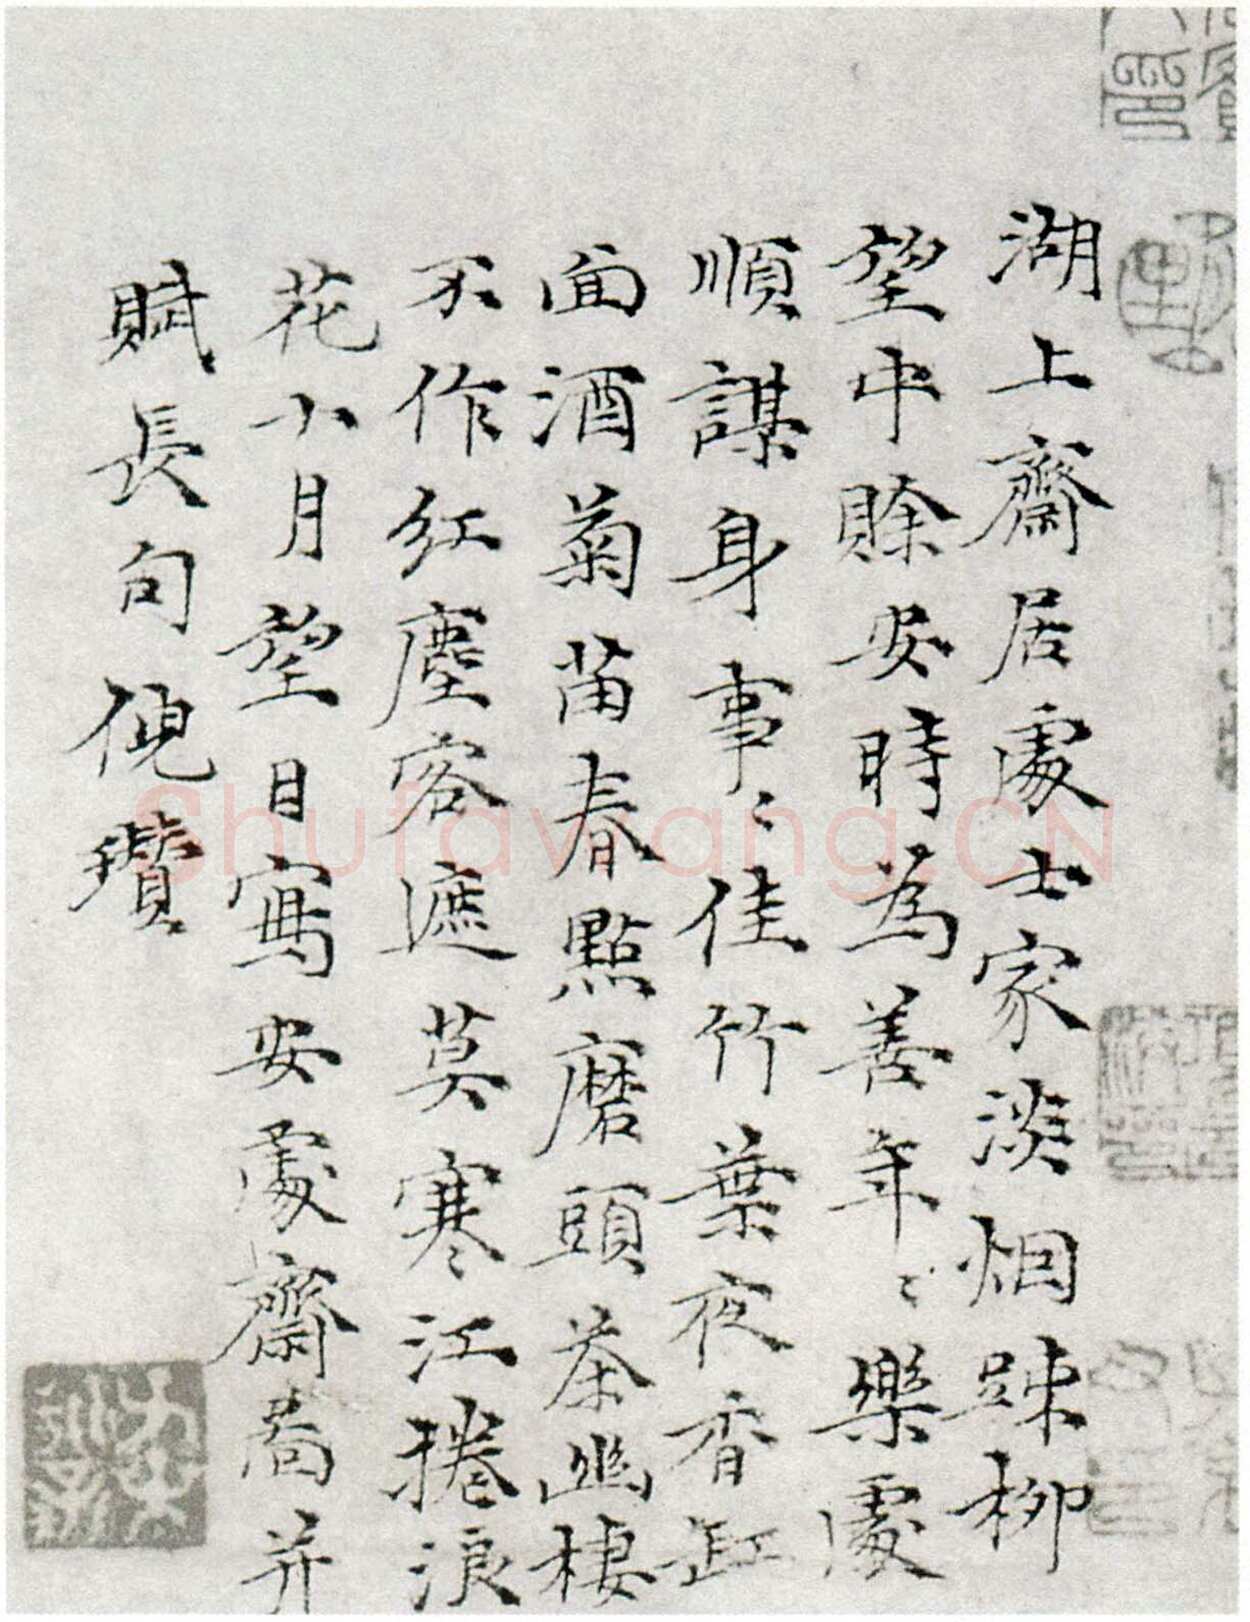 湖上齋居處士家淡烟踈柳
望中賖安時爲善年〻樂處
順謀身事〻佳竹葉夜香缸
面酒菊苗春點磨頭茶幽棲
不作紅塵客遮莫寒江捲浪
花十月望日寫安處齋啚并
賦長句倪瓚
Shufawang.CN